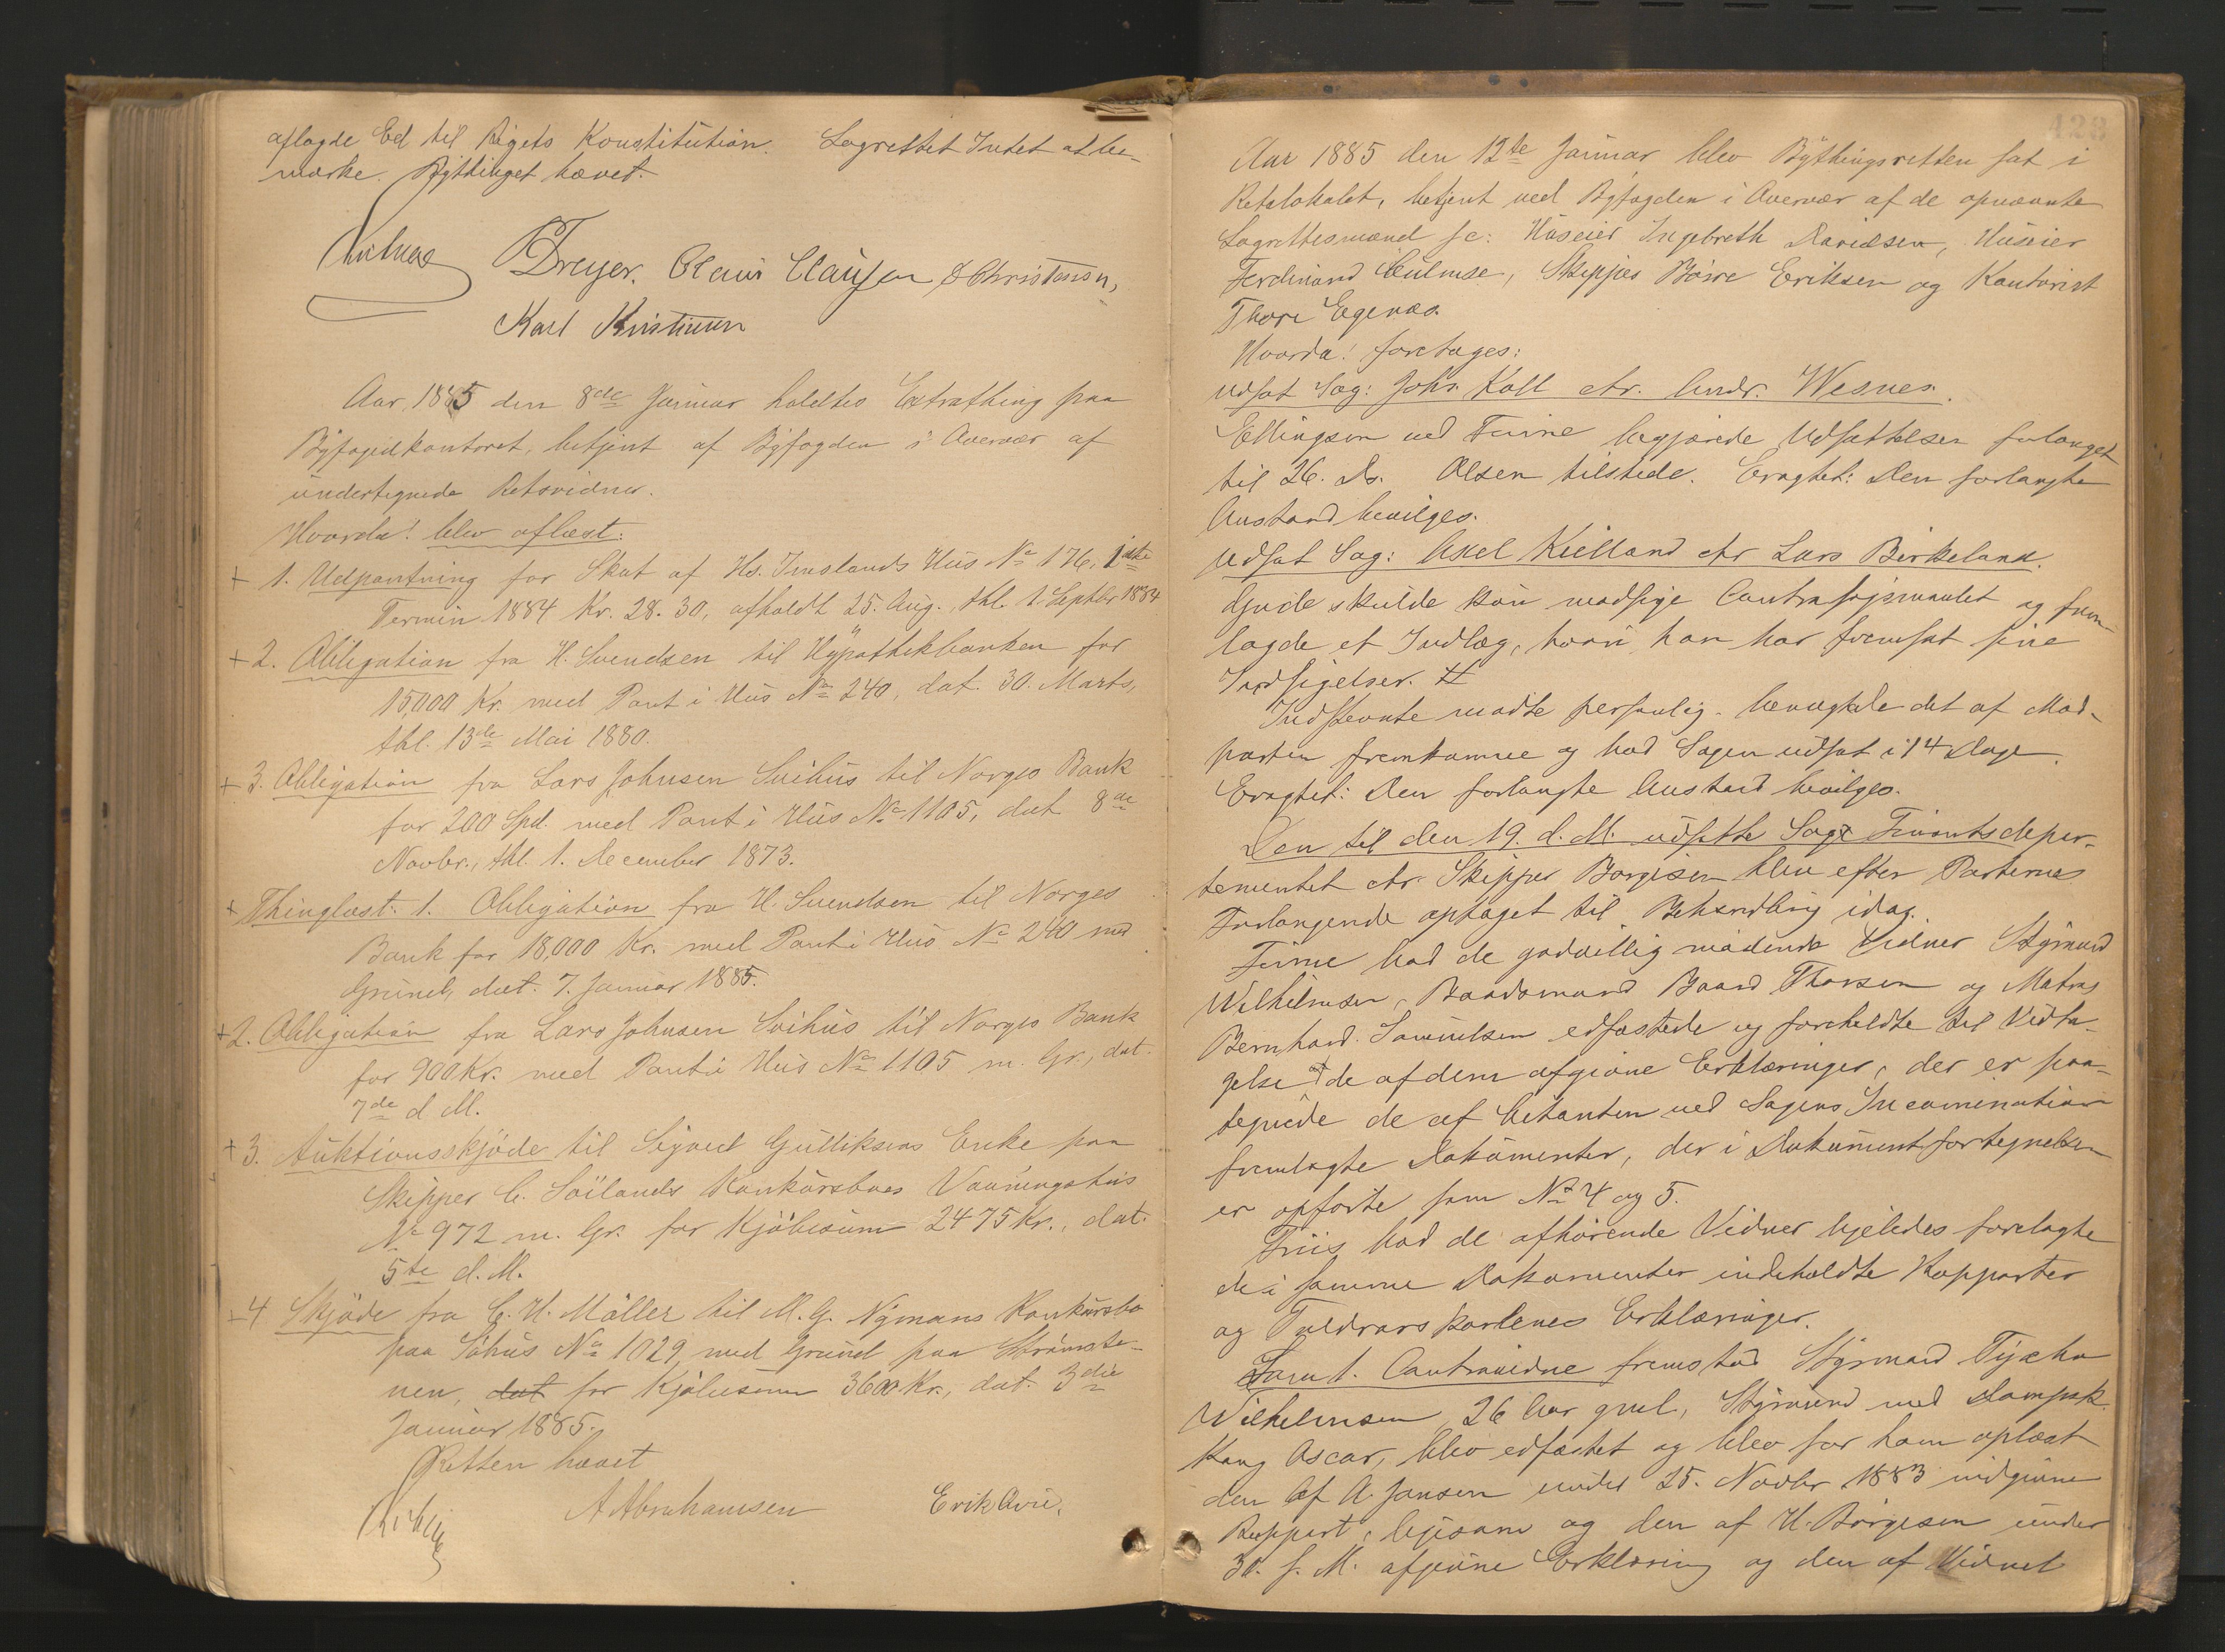 aflagde Ed til Rigets Konstitution. Lagrettet Intet at be-
mærke. Bythinget hævet.
Dreyer. Olaus Clausen S Christensen,
Karl Kristensen
Aar 1885 den 8de Januar holdtes Extrathing paa
Byfogedkontoret, betjent af Byfogden i Overvær af
undertegnede Retsvidner.
Hvorda! blev aflæst:
+ 1. Udpantning for Skat af Hs. Imslands Hus No 176, 1ste
Termin 1884 Kr. 28.30, afholdt 25. Aug., thl. 1. Septbr 1884
+ 2. Obligation fra H. Svendsen til Hypothekbanken for
15,000 Kr. med Pant i Hus No 240, dat. 30. Marts,
thl. 13de Mai 1880.
+ 3. Obligation fra Lars Johnsen Svihus til Norges Bank
for 200 Spd. med Pant i Hus No 1105, dat 8de
Novbr., thl. 1. December 1873.
+ Thinglæst. 1. Obligation fra H. Svendsen til Norges
Bank for 18,000 Kr. med Pant i Hus No 240 med
Grund, dat. 7. Januar 1885.
+ 2. Obligation fra Lars Johnsen Svihus til Norges Bank
for 900 Kr. med Pant i Hus No 1105 m. Gr., dat.
7de d M.
+ 3. Auktionsskjøde til Sigved Gulliksens Enke paa
Skipper C. Soïlands Konkursboes Vaaningshus
No 972 m. Gr. for Kjøbesum 2475 Kr., dat.
5te d. M.
- 4 Skjøde fra C. H. Møller til M. G. Nymans Konkursbo
paa Søhus No 1029, med Grund paa Strømste-
nen, dat for Kjøbesum 3600 Kr., dat. 3die
Januar 1885.
Retten hævet
A Abrahamsen Erik Avie.
428
Aar 1885 den 12te Januar blev Bythingsretten sat i
Retslokalet, betjent ved Byfogden i Overvær af de opnævnte
Lagrettesmænd sc: Huseier Ingebreth Davidsen, Huseier
Ferdinand, Skipper Børre Eriksen og Kontorist
Thore Egenæs.
Hvorda! foretages:
Udsat Sag: Johs. Kall ctr. Andr. Wesnes.
Ellingsen ved Finne begjærede Udsættelsen forlænget
til 26. Ds. Olsen tilstede. Eragtet: Den forlangte
Anstand bevilges.
Udsat Sag: Axel Kielland ctr Lars Birkeland.
Gjude skulde kun modsige Contrasøgsmaalet og frem-
lagde et Indlæg, hvori han har fremsat sine
Indsigelser. #
Indstevnte mødte personlig. benægtede det af Mod-
parten fremkomne og bad Sagen udsat i 14 Dage.
Eragtet: Den forlangte Anstand bevilges.
Den til den 19. d. M. udsatte Sag Finantsdepar-
tementet ctr. Skipper Børgesen blev efter Parternes
Forlangende optaget til Behandling idag.
Finne bad de godvillig mødende Vidner Styrmand
Wilhelmsen, Baadsmand Baard Thorsen og Matros
Bernhard Samuelsen edfæstede og foreholdte til Vedta-
gelse de af dem afgivne Erklæringer, der er paa-
tegnede de af Citanten ved Sagens Incamination
fremlagte Dokumenter, der i Dokumentfortegnelsen
er opførte som No 4 og 5.
Friis bad de afhørende Vidner ligeledes forelagte
de i samme Dokumenter indeholdte Rapporter
og Toldvæs Erklæringer.
Som 1. Contravidne fremstod Styrmand Tycho
Wilhelmsen, 26 Aar gml., Styrmand med Dampsk.
Kong Oscar, blev edfæstet og blev for ham oplæst
den af A. Jansen under 25. Novbr 1883 indgivne
Rapport, ligesom og den af H. Børgesen under
30. s. M. afgivne Erklæring og den af Vidnet